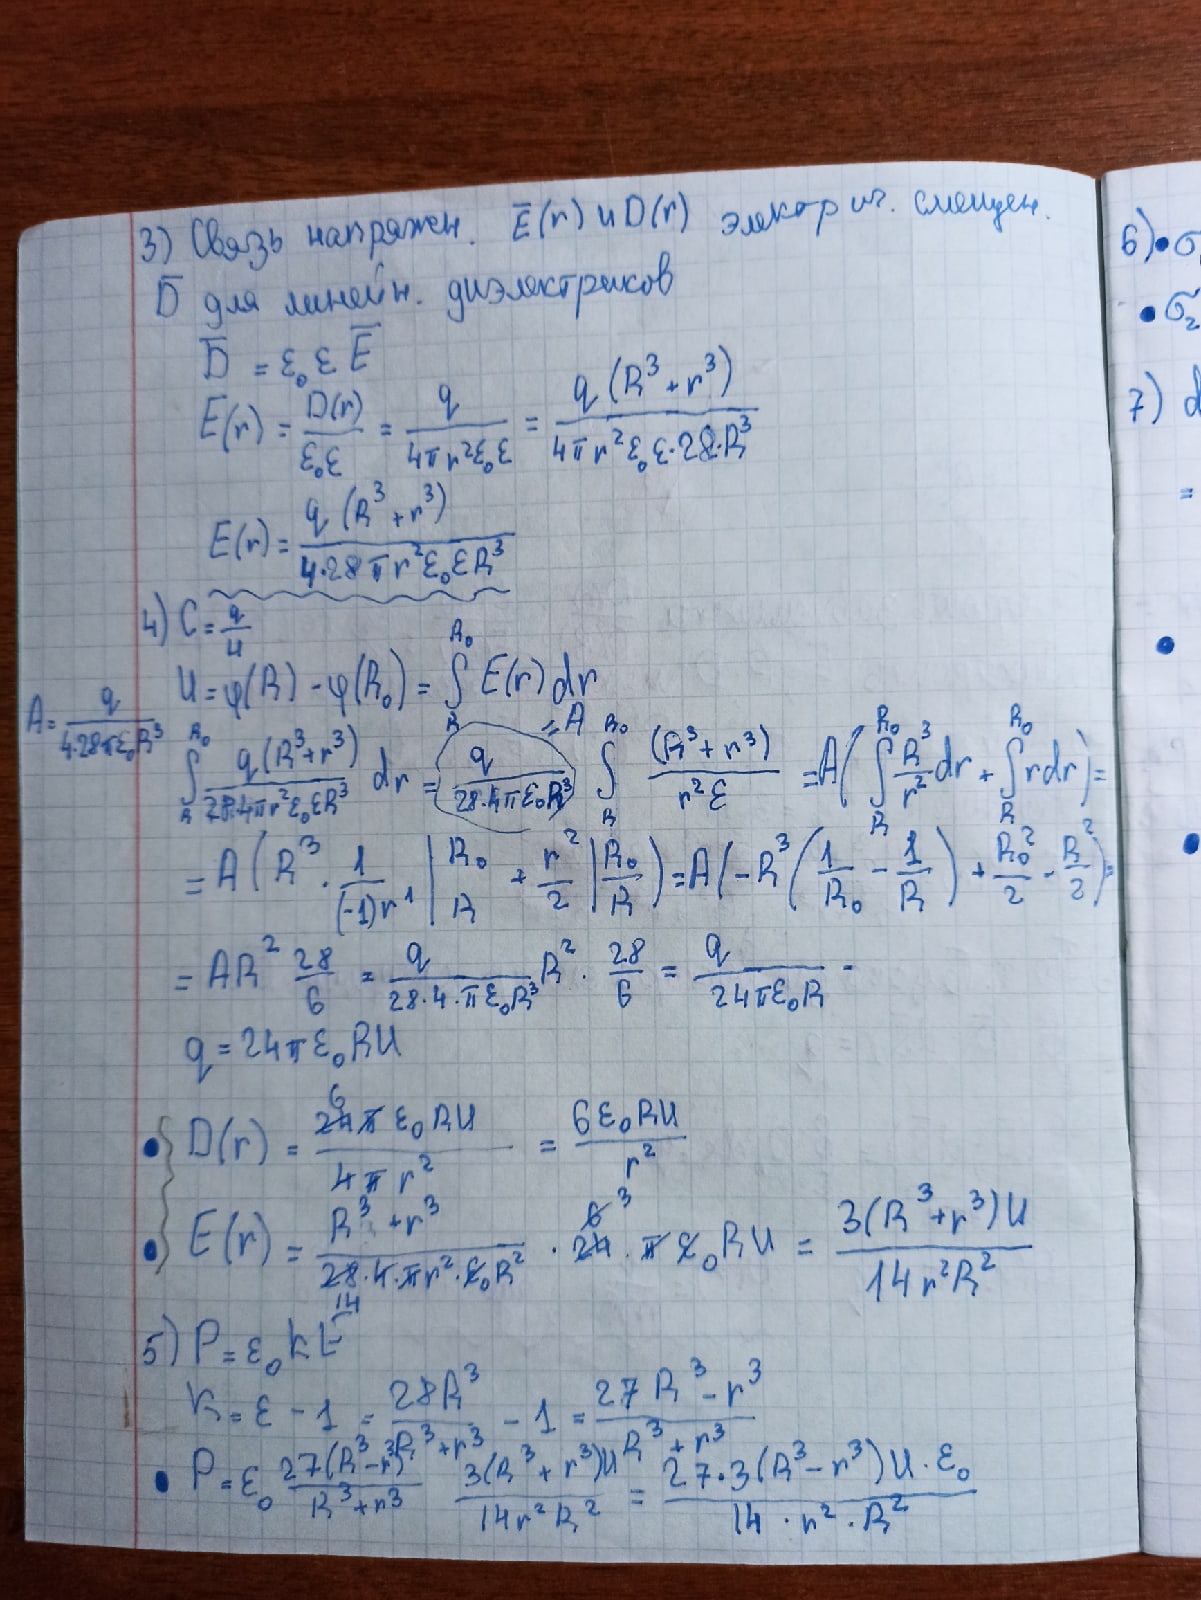 3) Связь напряжен. E̅(r) и D(r) электрич. смещен.
D̅ для линейн. диэлектриков
D̅ = ε₀ ε E̅
E(r) = D(r)/(ε₀ε) = q/(4πr²ε₀ε) = q(R³+r³)/(4πr²ε₀ε·28·R³)
E(r) = q(R³+r³)/(4·28πr²ε₀εR³)
4) C = q/U
U = φ(R) - φ(R₀) = ∫_R^R₀ E(r)dr
A = q/(4·28πε₀R³)
∫_R^R₀ q(R³+r³)/(28·4πr²ε₀εR³) dr = q/(28·4πε₀R³) =A ∫_R^R₀ (R³+r³)/(r²ε) = A(∫_R^R₀ R³/r² dr + ∫_R^R₀ rdr) =
= A(R³ · 1/((-1)r¹) |_R^R₀ + r²/2 |_R^R₀) = A(-R³(1/R₀ - 1/R) + R₀²/2 - R²/2) =
= AR² 28/6 = q/(28·4·πε₀R³) R² · 28/6 = q/(24πε₀R) -
q = 24πε₀RU
• D(r) = 24π ε₀RU/(4πr²) = 6ε₀RU/r²
• E(r) = (R³+r³)/(28·4·πr²·ε₀R²) · 24 · π ε₀RU = 3(R³+r³)U/(14r²R²)
5) P = ε₀kE
k = ε - 1 = 28R³/(R³+r³) - 1 = (27R³-r³)/(R³+r³)
• P = ε₀ 27(R³-r³)/(R³+r³) 3(R³+r³)U/(14r²R²) = 27·3(R³-r³)U·ε₀/(14·r²·R²)
6) • σ
• σ₂
7) d
=